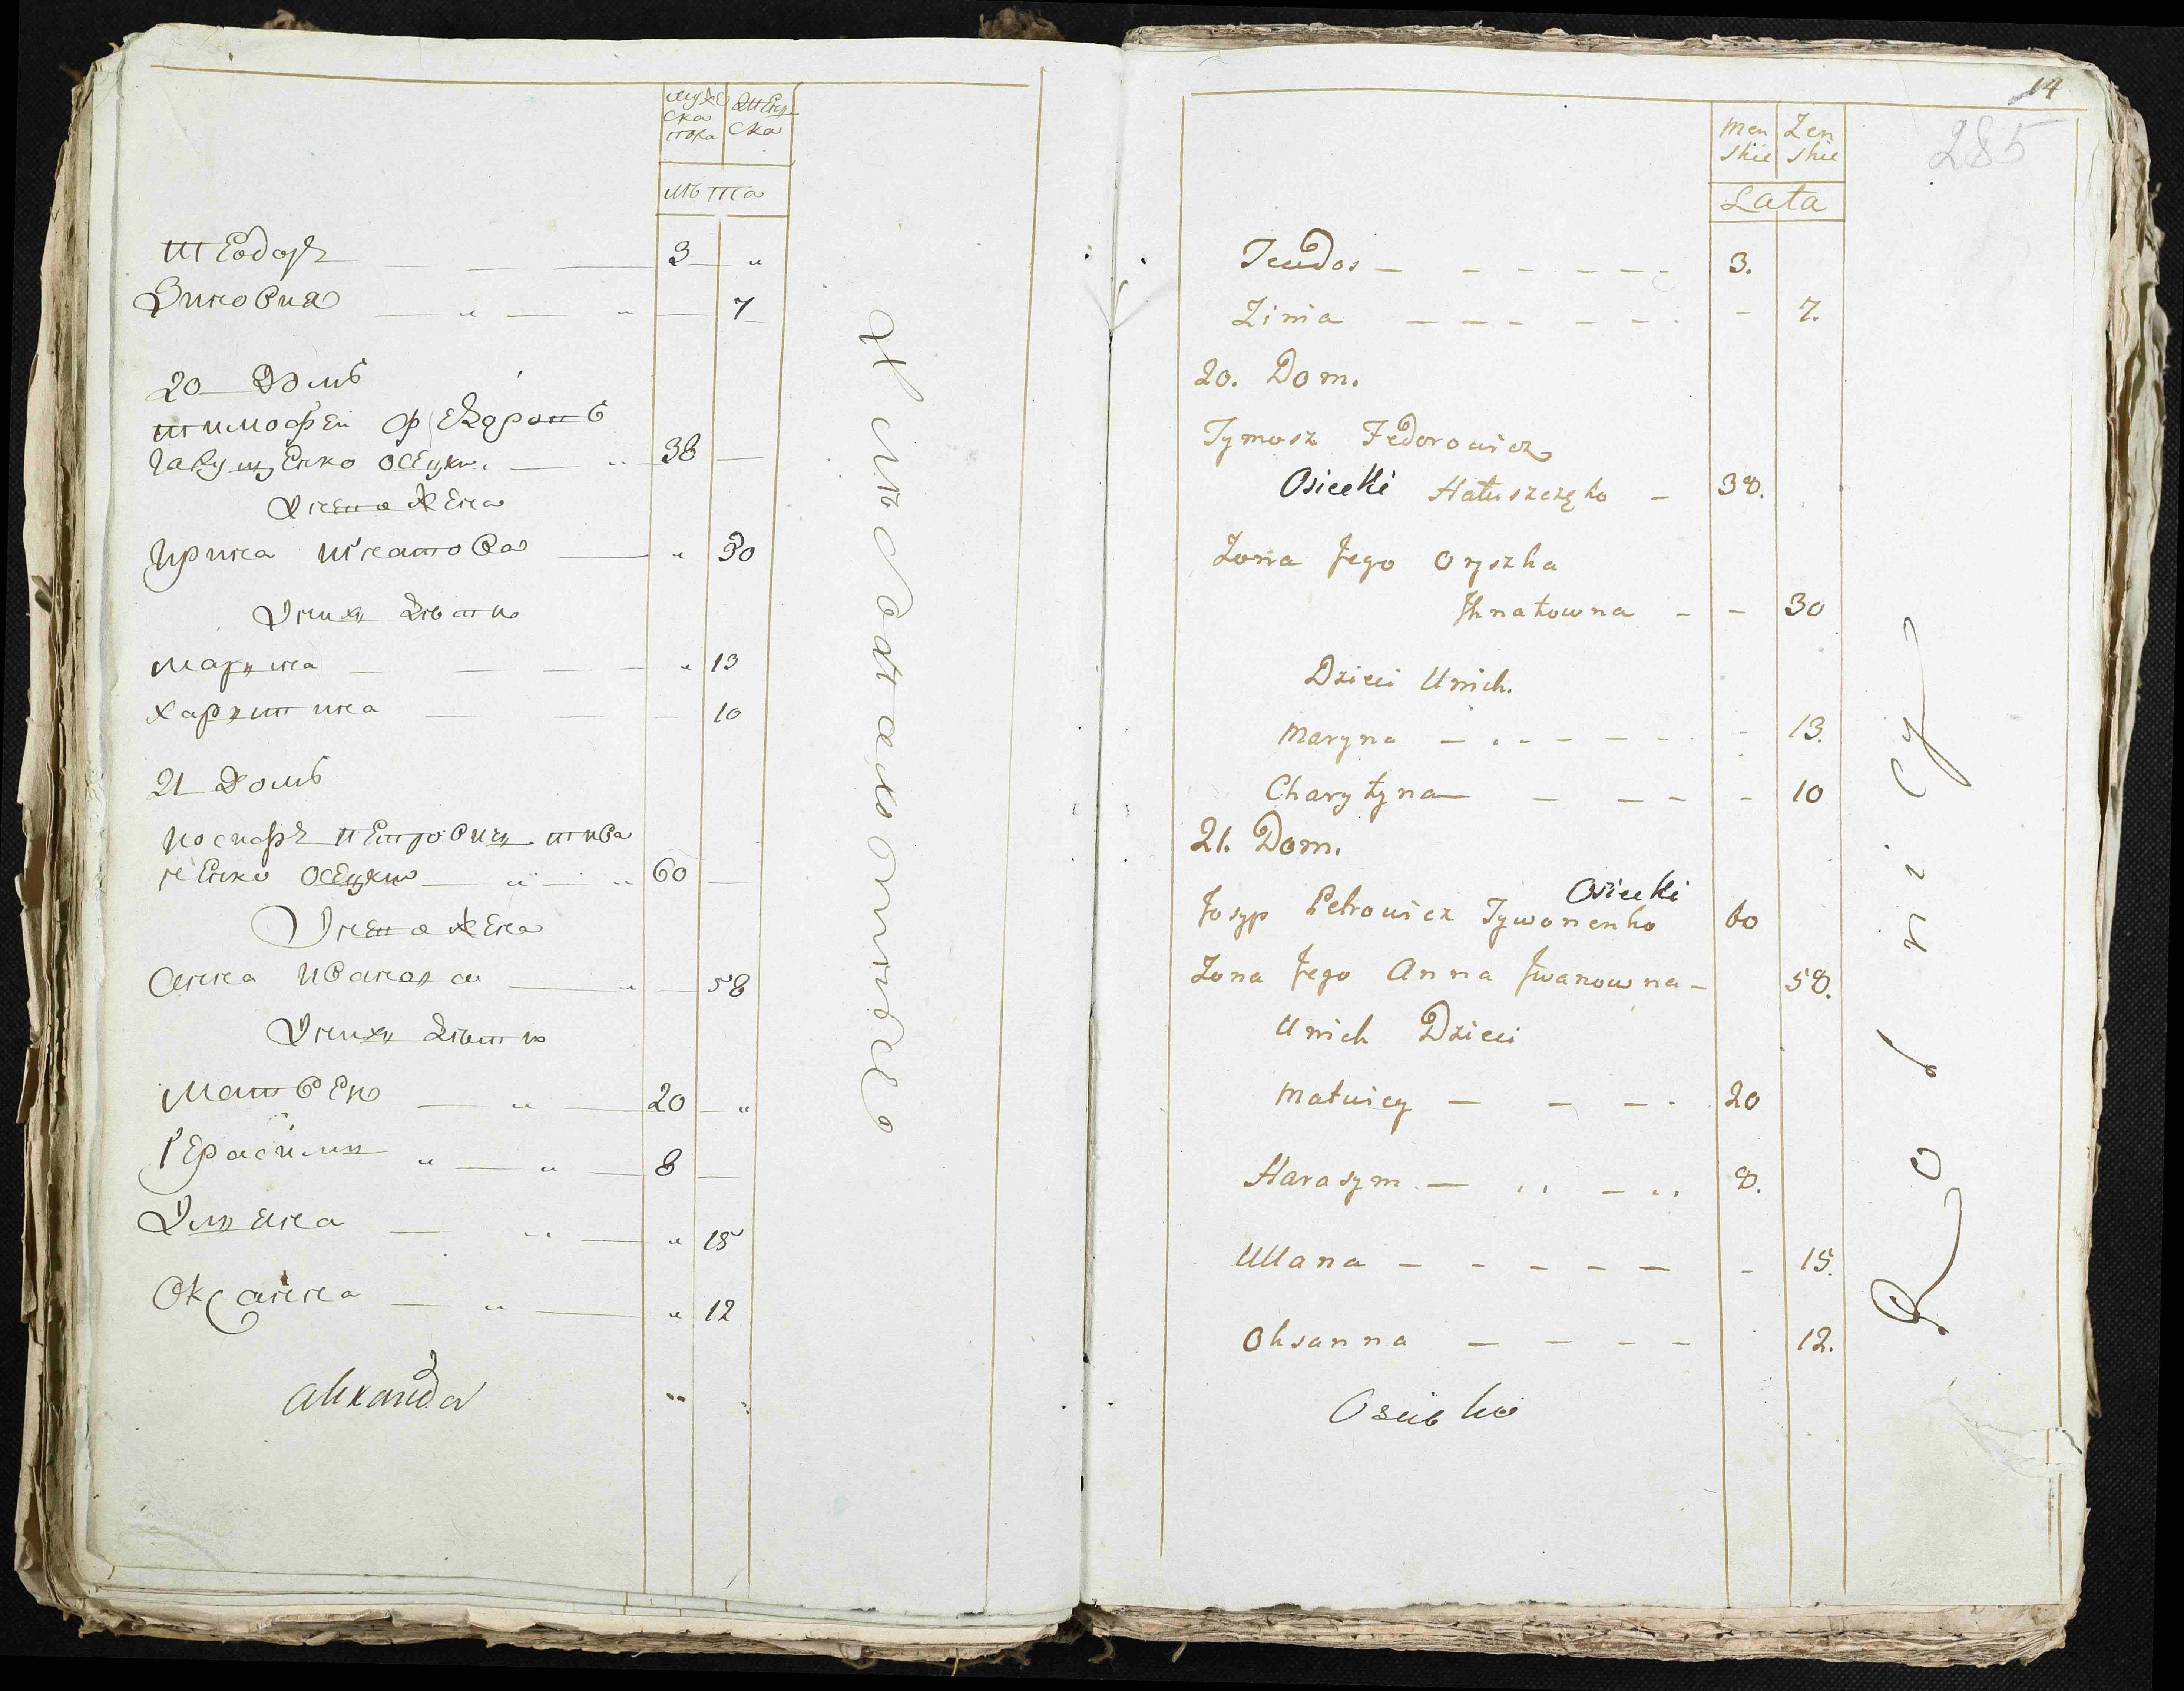 муже
ска
пола
женс
ска
лѣта
Теодоръ 3 "
Зиновия " " 7
20 Домъ
тимофеи Федоровъ
Галущенко осецки. " 38
Унего Жена
Ирина игнатова " 30
Унихъ дѣти
марина " 13
харитина 10
21 Домъ
иосифъ петровичъ тива
ненко осецки " " 60
Унего жена
Анна Иванова " 58
Унихъ дѣти
Матвеи " 20 "
Герасимъ " " 8
Улияна " " 15
Оксанна " " 12
Alexandra
хлѣбопашество
14
285
Men
skie
Zen
skie
Lata
Teodos 3.
Zinia 7.
20. Dom.
Tymosz Fedorowicz
Osiecki Hałuszczęko 38.
Zona Jego Oryszka
Ihnatowna 30
Dzieci Unich.
Maryna 13.
Charytyna 10
21. Dom.
Osiecki
Josyp Petrowicz Tywonenko 60
Zona Jego Anna Jwanowna 58.
Unich Dzieci
Matwiey 20
Harasym 8.
Ullana 15.
Oksanna 12.
Osiecka
Rolnicy